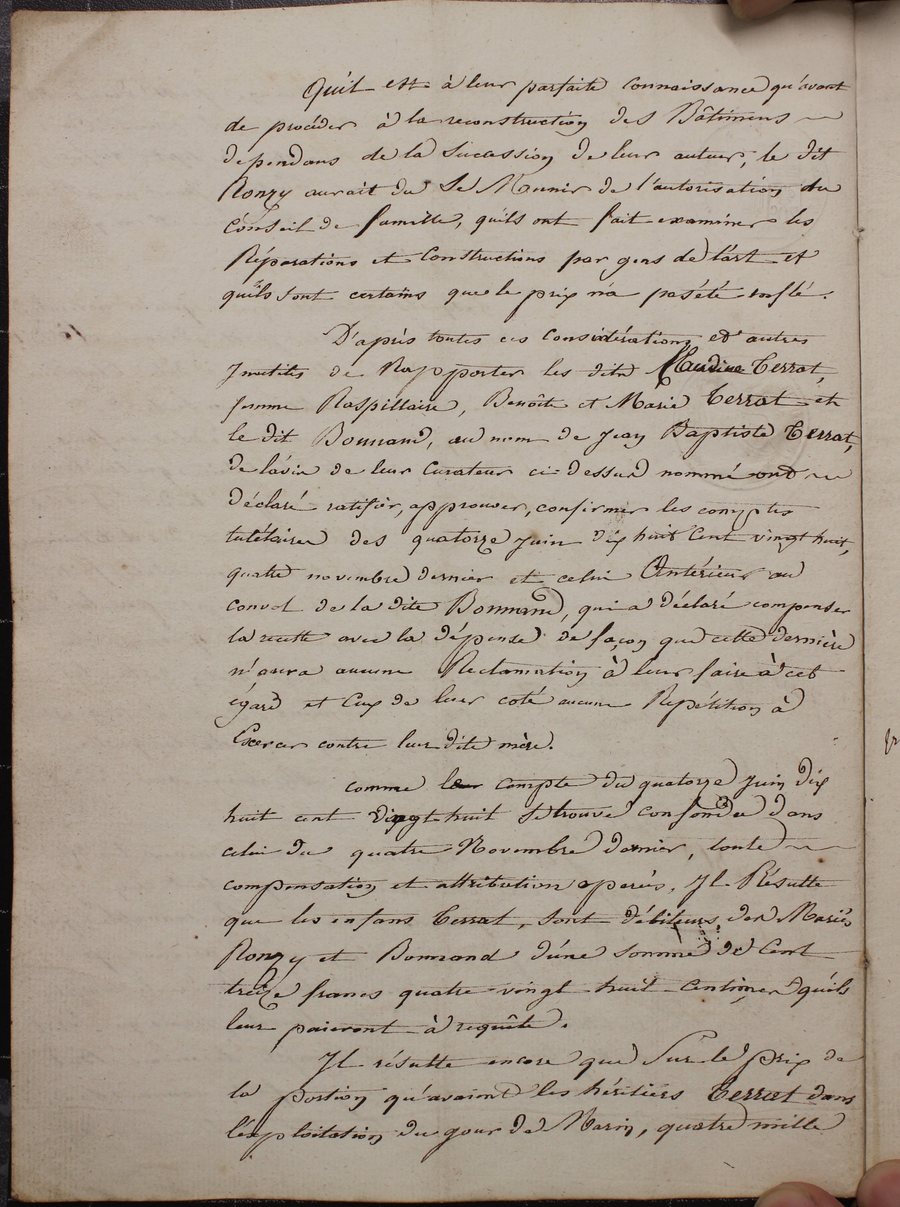 Qu'il est à leur parfaite connaissance qu'avant
de procéder à la reconstruction des Bâtimens
dependans de la succession de leur auteur, le dit
Ronzy aurait du se Munir de l'autorisation du
Conseil de famille, qu'ils ont fait examiner les
Réparations et Constructions par gens de l'art et
qu'ils sont certains que le prix n'a pas été enflé.
D'après toutes ces considérations et d'autres
Inutiles de Rapporter les dits Claudine Terrat,
femme Raspillaire, Benoîte et Marie Terrat et
le dit Bonnand, au nom de Jean Baptiste Terrat,
de l'avis de leur Curateur ci-dessus nommé ont
déclaré ratifier, approuver, confirmer les comptes
tutélaires des quatorze juin dix huit Cent vingt huit,
quatre novembre dernier et celui Antérieur au
convol de la dite Bonnand, qui a déclaré compenser
la recette avec la dépense de façon que cette dernière
n'aura aucune Réclamation à leur faire à cet
égard et Eux de leur coté aucune Répétition à
Exercer contre leur dite mère.
comme le compte du quatorze Juin dix
huit cent vingt-huit se trouve confondu dans
celui du quatre Novembre dernier, toute
compensation et attribution opérés, Il Résulte
que les enfans Terrat, sont débiteurs des Mariés
Ronzy et Bonnand d'une somme de Cent
treize francs quatre vingt huit Centimes qu'ils
leur paieront à requête.
Il résulte encore que Sur le prix de
la portion qu'avaient les héritiers Terrat dans
l'exploitation du gour de Marin, quatre mille